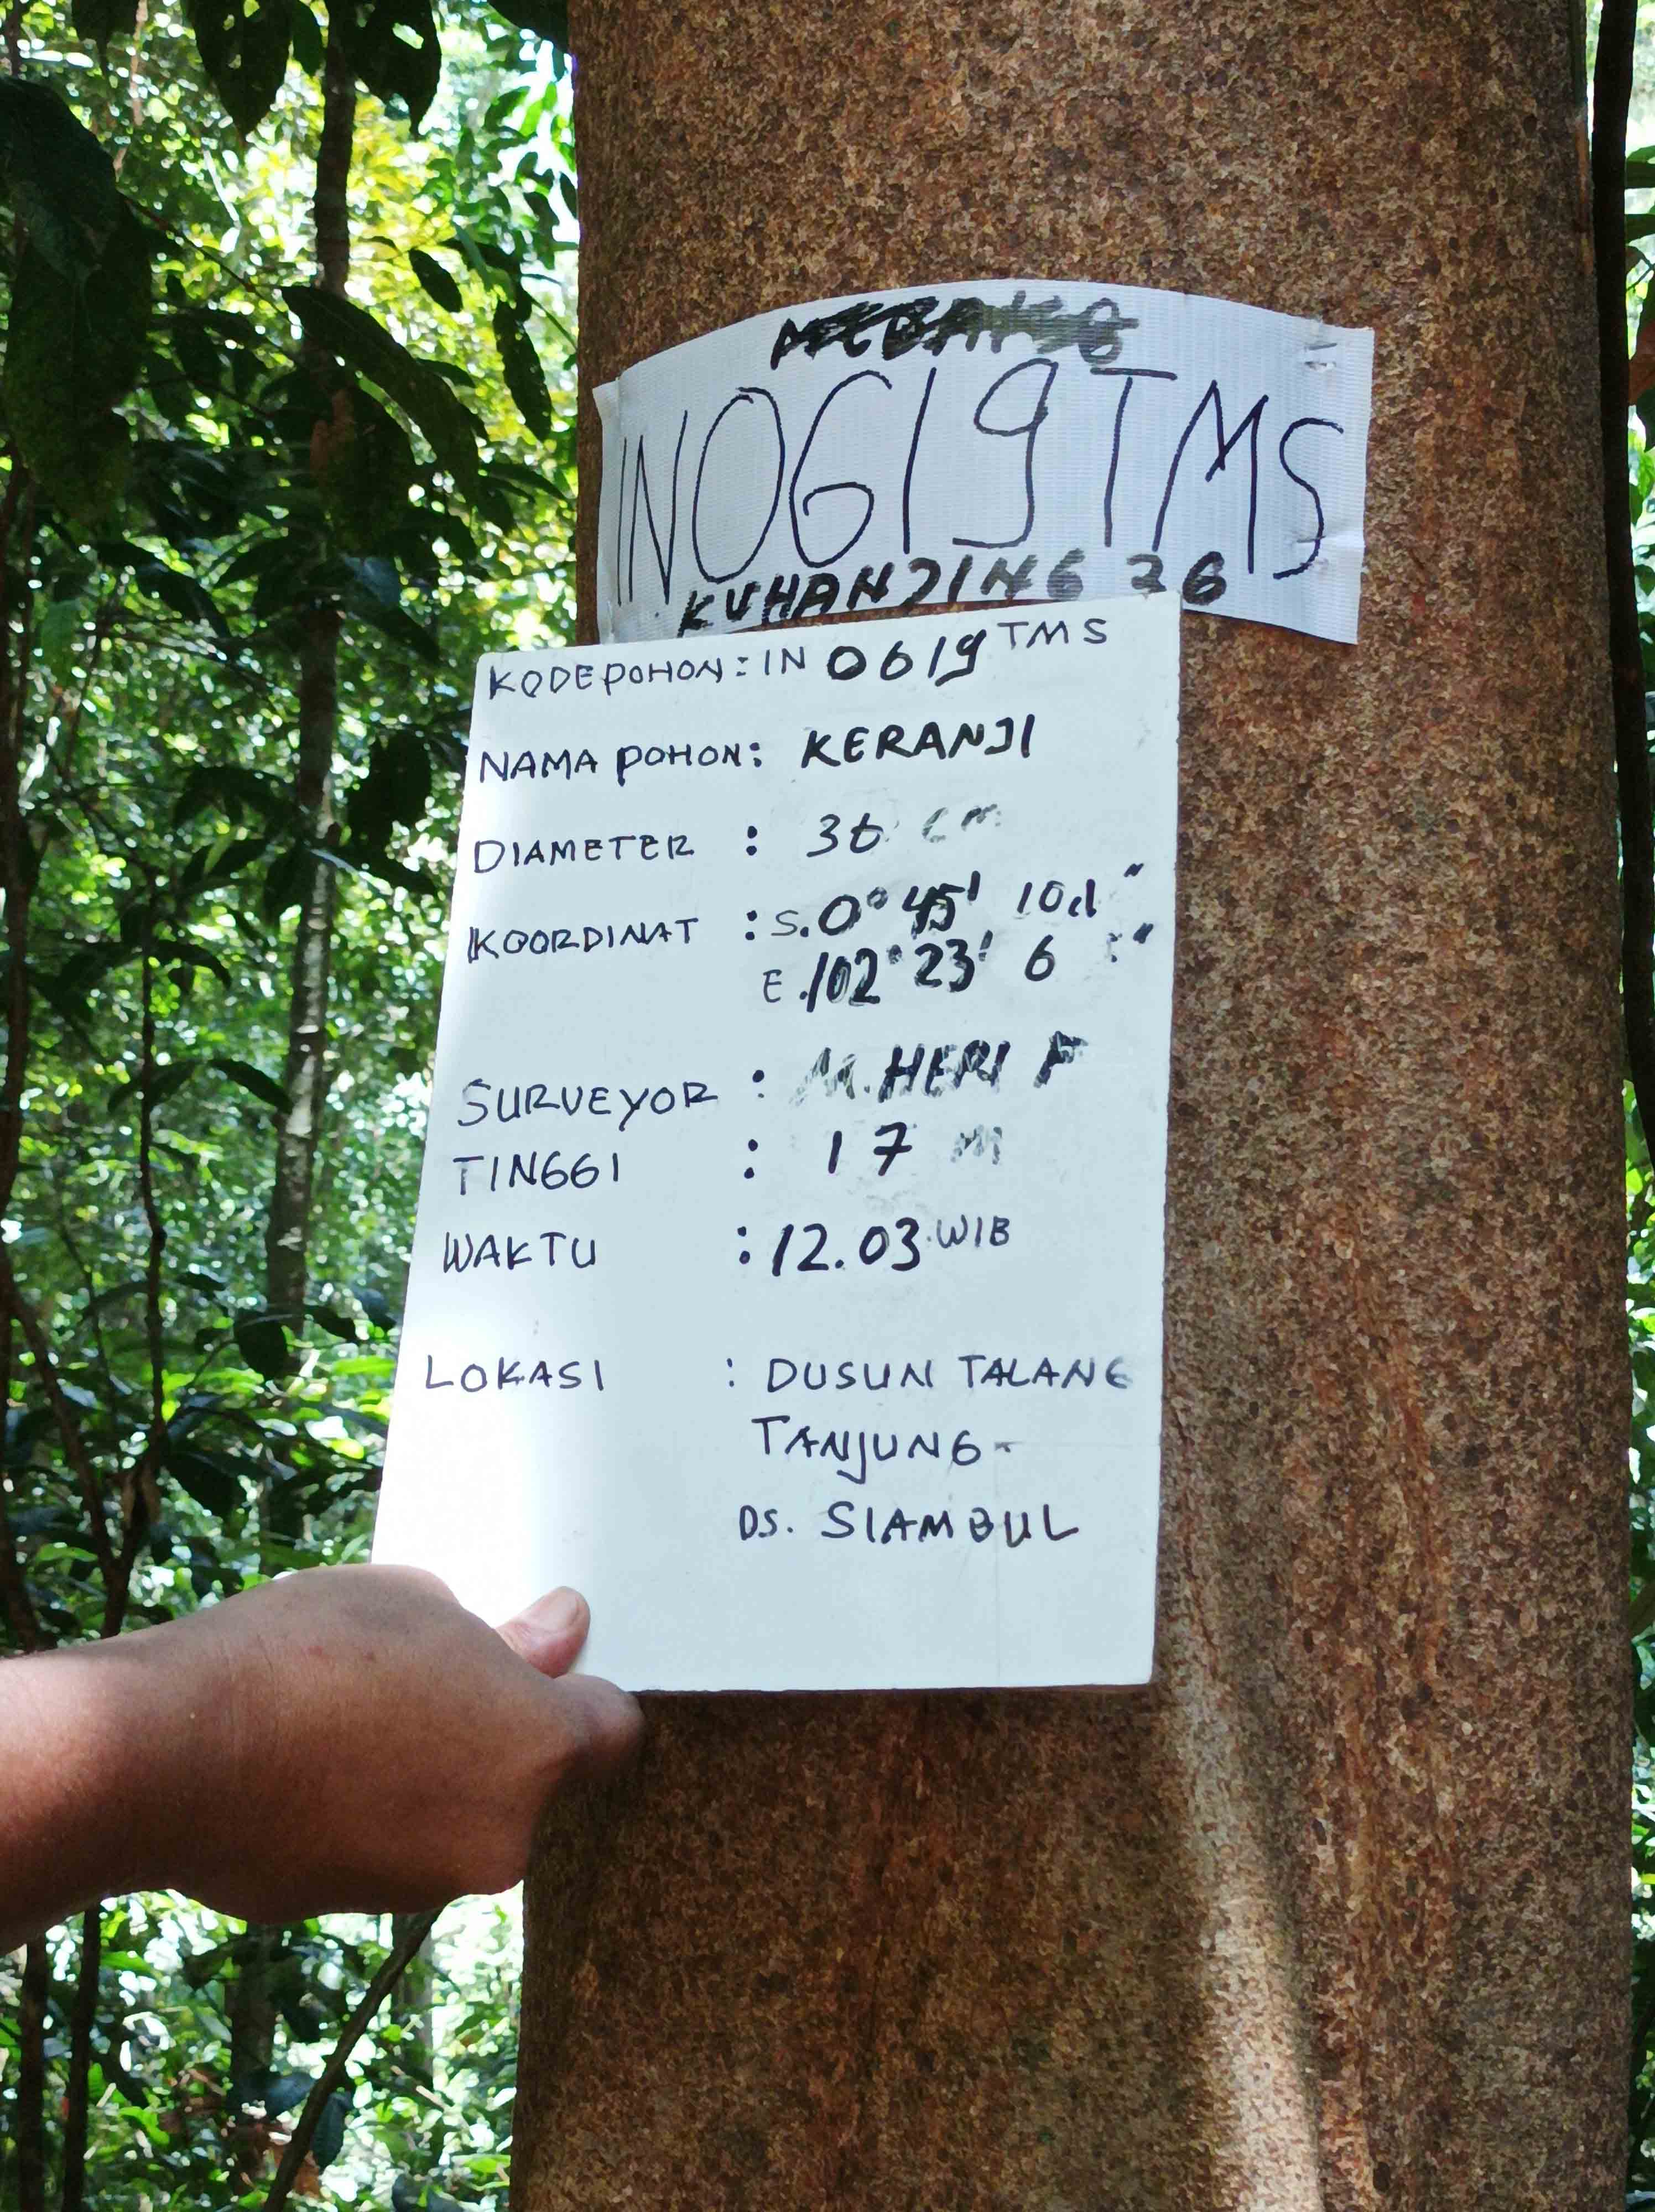 IN0619TMS
KUHANJING 36
KODE POHON: IN 0619 TMS
NAMA POHON: KERANJI
DIAMETER : 36 cm
KOORDINAT : S. 0° 45' 10,1"
E. 102° 23' 6 "
SURVEYOR : M. HERI F
TINGGI : 17 m
WAKTU : 12.03 WIB
LOKASI : DUSUN TALANG
TANJUNG -
DS. SIAMBUL